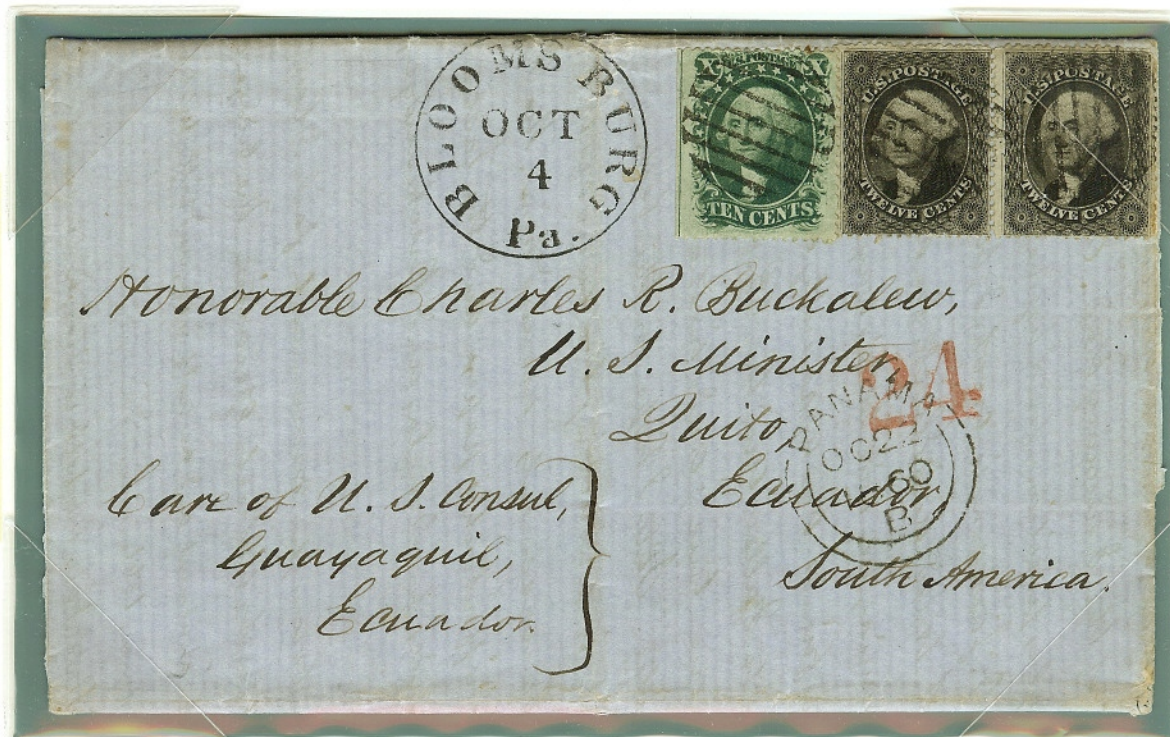 BLOOMSBURG
OCT
4
Pa.
X U.S. POSTAGE X
TEN CENTS
U.S. POSTAGE
TWELVE CENTS
U.S. POSTAGE
TWELVE CENTS
Honorable Charles R. Buckalew,
U. S. Minister,
24
Quito,
PANAMA
OC 22
60
B
Ecuador,
South America.
Care of U. S. Consul,
Guayaquil,
Ecuador.